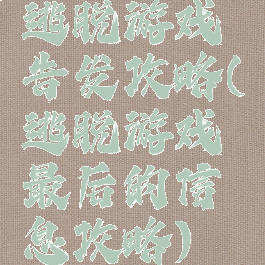 逃脱游戏
告发攻略(
逃脱游戏
最后的信
息攻略)